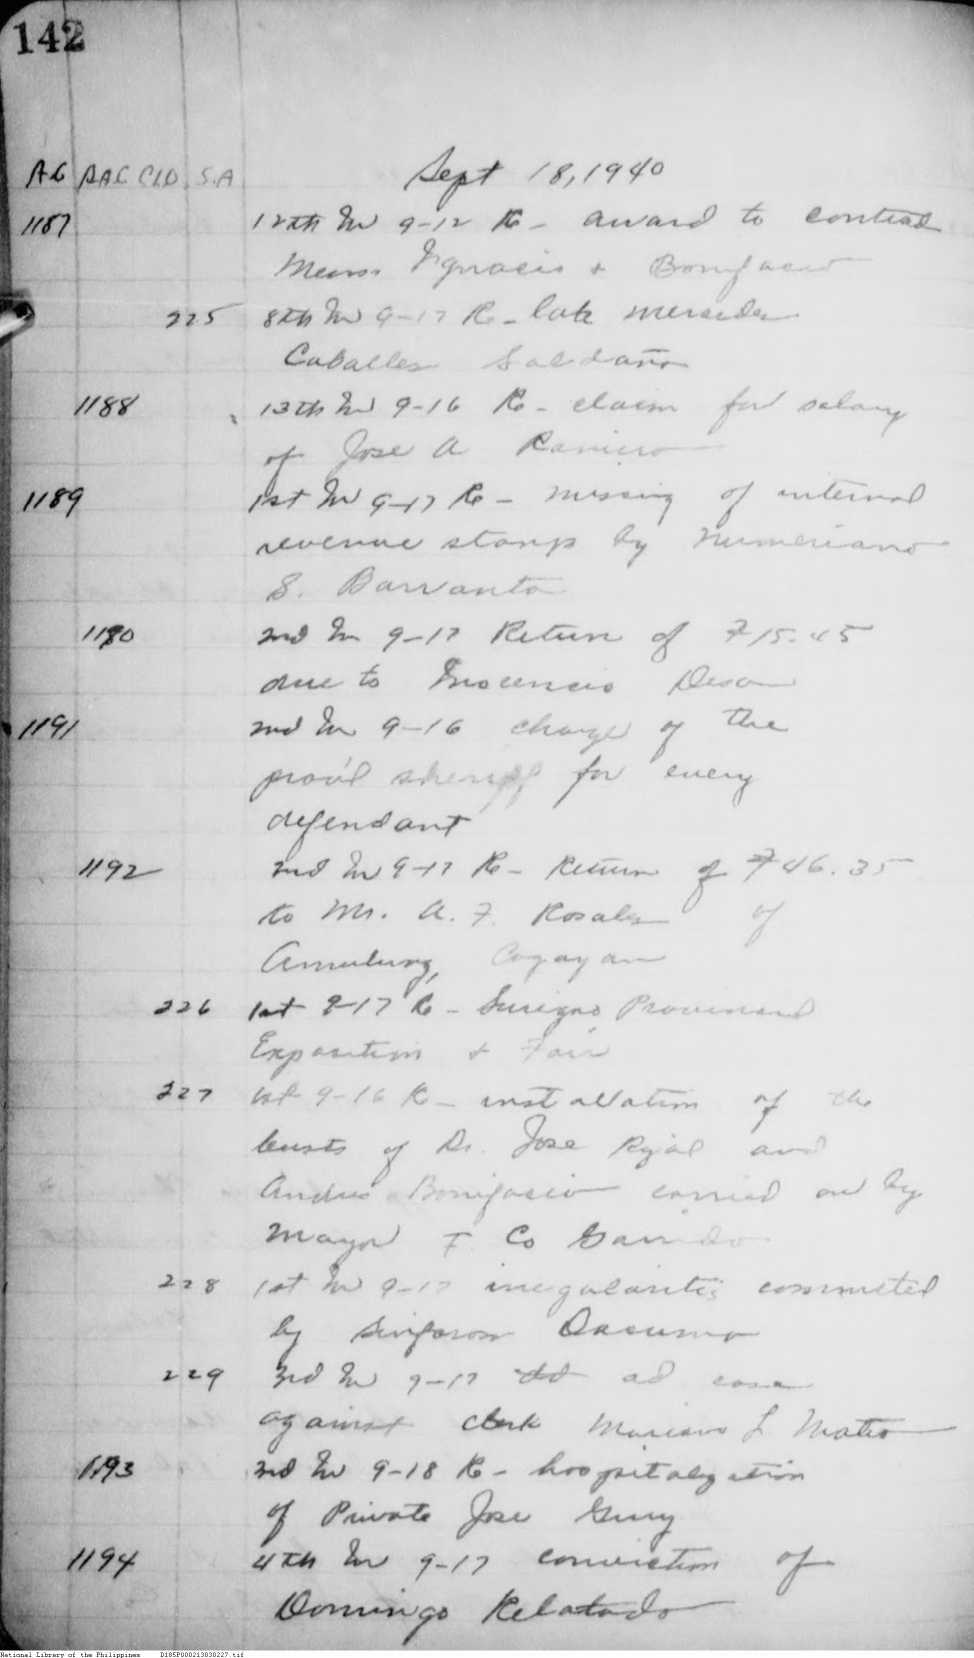 142
AG BAC CLD S.A
Sept 18, 1940
1187 12th In 9-12 Re - award to contract
Messrs Ygnacio & Bonifacio
225 8th In 9-17 Re - late Mercedes
Caballes Saldaño
1188 13th In 9-16 Re - claim for salary
of Jose A Ramiro
1189 1st In 9-17 Re - missing of internal
revenue stamp by Numeriano
S. Barranto
1190 2nd In 9-17 Return of ₱15.45
due to Inocencio
1191 2nd In 9-16 charge of the
prov'l sheriff for every
defendant
1192 2nd In 9-17 Re - Return of ₱46.35
to Mr. A. F. Rosales of
Amulung, Cagayan
226 1st 9-17 Re - Surigao Provincial
Exposition & Fair
227 1st 9-16 Re - installation of the
busts of Dr. Jose Rizal and
Andres Bonifacio carried on by
Mayor F Co Garrido
228 1st In 9-17 irregularities committed
by
229 3rd In 9-17 ad case
against clerk Mariano L Mateo
1193 2nd In 9-18 Re - hospitalization
of Private Jose
1194 4th In 9-17 conviction of
Domingo Relatado
National Library of the Philippines D185P000213030227.tif